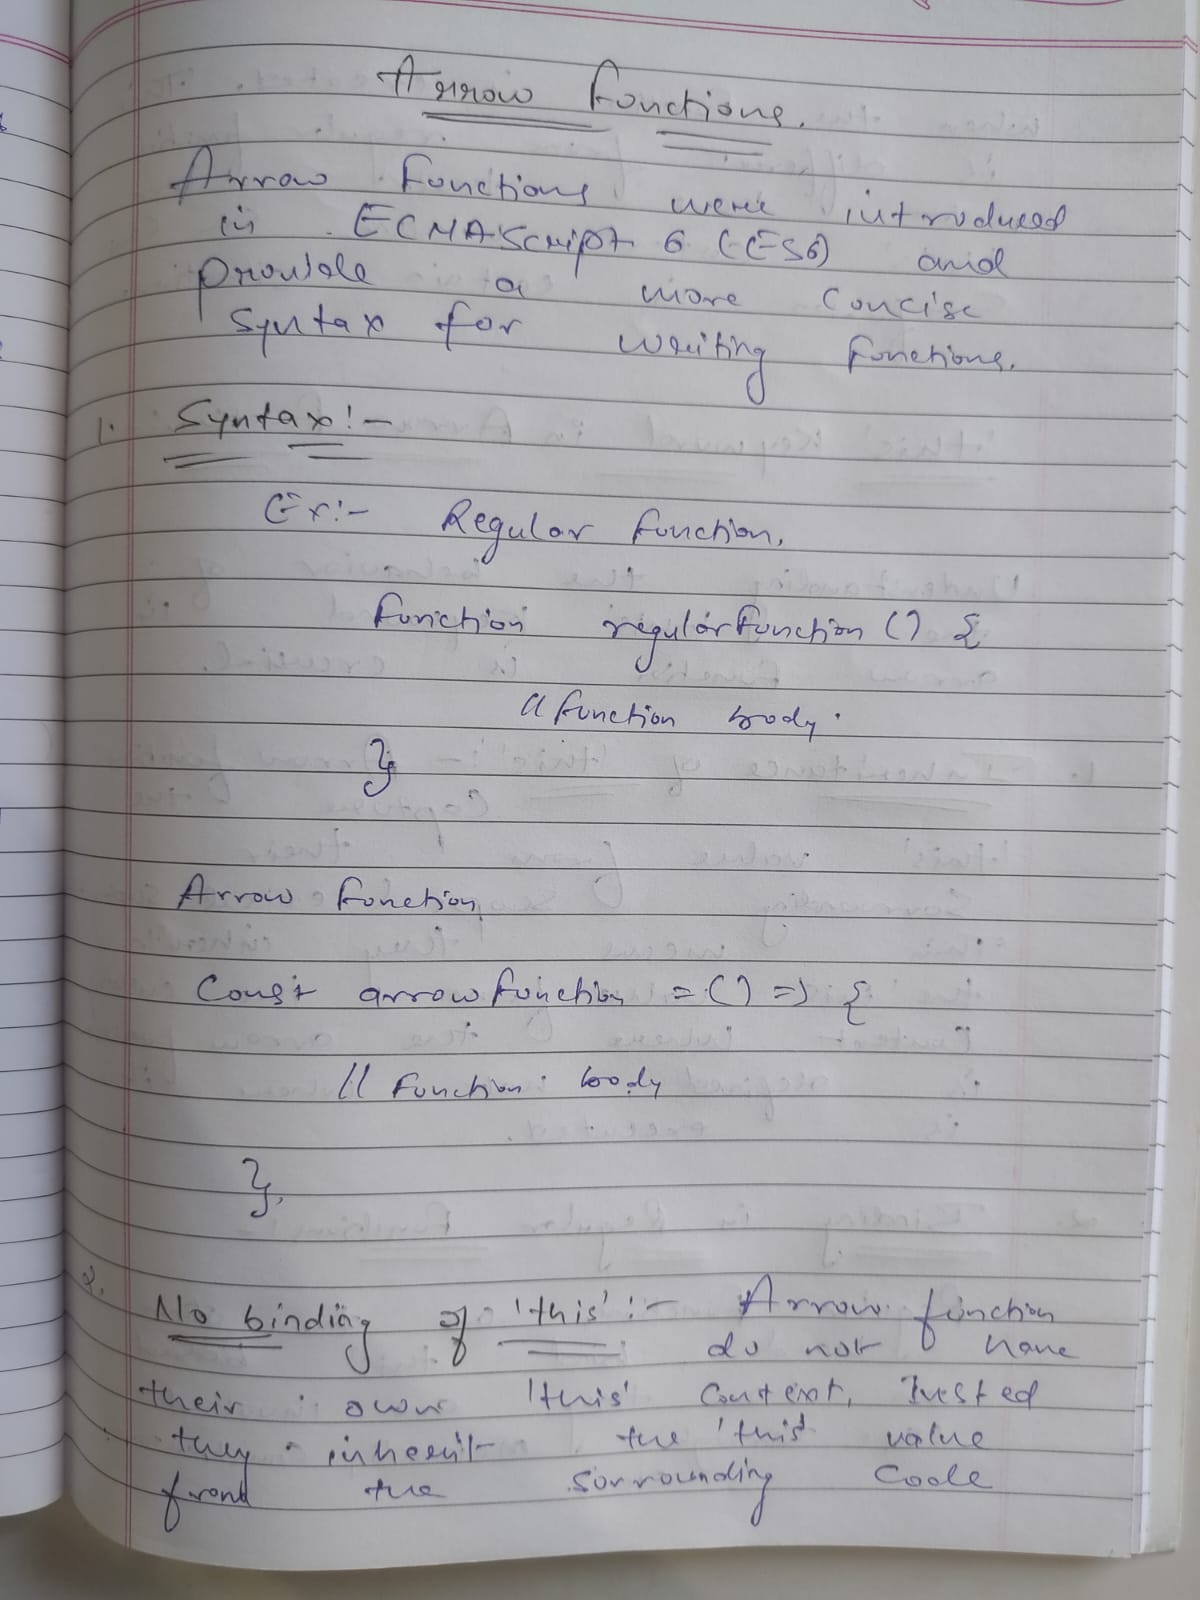 Arrow functions.
Arrow Functions were introduced
in ECMAScript 6 (ES6) and
provide a more concise
Syntax for writing functions.
1. Syntax:-
Ex:- Regular function,
function regularfunction () {
// function body.
}
Arrow function
Const arrow function = () => {
// Function body
}
2. No binding of 'this' :- Arrow function
do not have
their own 'this' context, Insted
they inherit the 'this' value
from the sorrounding code